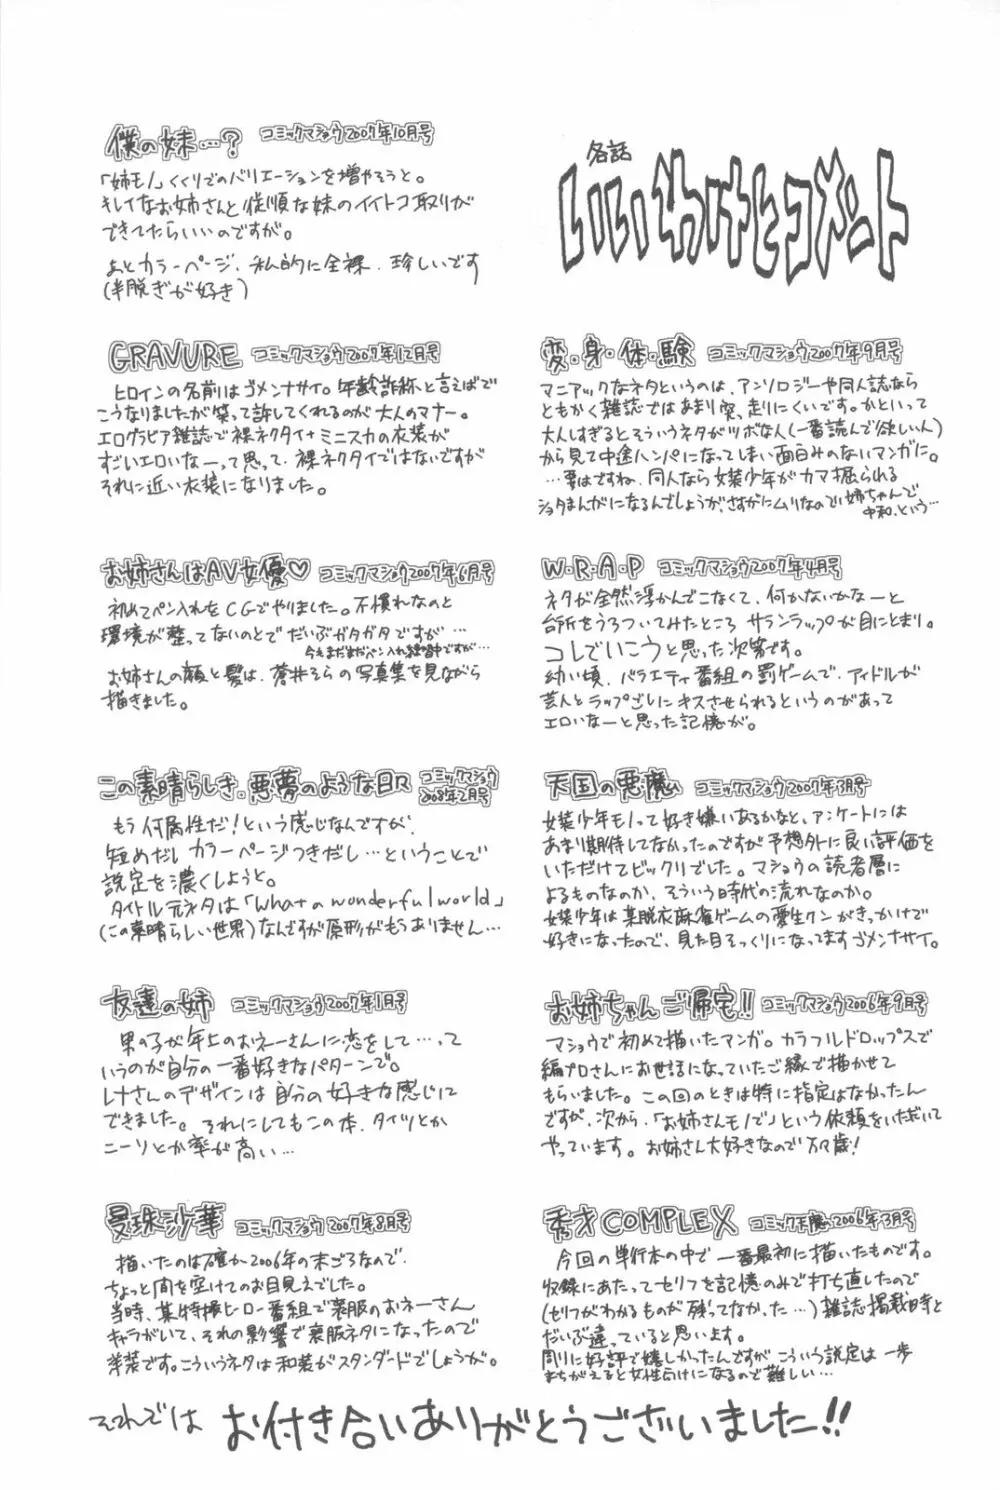 各話
いいわけとコメント
変・身・体・験 コミックマショウ2007年9月号
マニアックなネタというのは、アンソロジーや同人誌なら
ともかく雑誌ではあまり突っ走りにくいです。かといって
大人しすぎるとそういうネタがツボな人(一番読んで欲しい人)
から見て中途ハンパになってしまい面白みのないマンガに。
…要はですね、同人なら女装少年がカマ掘られる
ショタまんがになるんでしょうが、さすがにムリなので姉ちゃんで
中和、という…
W・R・A・P コミックマショウ2007年4月号
ネタが全然浮かんでこなくて、何かないかなーと
台所をうろついてみたところ サランラップが目にとまり。
コレでいこうと思った次第です。
幼い頃、バラエティ番組の罰ゲームで、アイドルが
芸人とラップごしにキスさせられるというのがあって
エロいなーと思った記憶が。
天国の悪魔 コミックマショウ2007年3月号
女装少年モノって好き嫌いあるかなと、アンケートには
あまり期待してなかったのですが予想外に良い評価を
いただけてビックリでした。マショウの読者層に
よるものなのか、そういう時代の流れなのか。
女装少年は某脱衣麻雀ゲームの愛生クンがきっかけで
好きになったので、見た目そっくりになってますゴメンナサイ。
お姉ちゃんご帰宅!! コミックマショウ2006年9月号
マショウで初めて描いたマンガ。カラフルドロップスで
編プロさんにお世話になっていたご縁で描かせて
もらいました。この回のときは特に指定はなかったん
ですが、次から、「お姉さんモノで」という依頼をいただいて
やっています。お姉さん大好きなので万々歳!
秀才COMPLEX コミック正魔2006年3月号
今回の単行本の中で一番最初に描いたものです。
収録にあたってセリフを記憶のみで打ち直したので
(セリフがわかるものが残ってなかった…)雑誌掲載時と
だいぶ違っていると思います。
周りに好評で嬉しかったんですが こういう設定は一歩
まちがえると女性向けになるので難しい…
僕の妹…? コミックマショウ2007年10月号
「姉モノ」くくりでのバリエーションを増やそうと。
キレイなお姉さんと従順な妹のイイトコ取りが
できてたらいいのですが。
あとカラーページ、私的に全裸、珍しいです
(半脱ぎが好き)
GRAVURE コミックマショウ2007年12月号
ヒロインの名前はゴメンナサイ。年齢詐称と言えばで
こうなりましたが笑って許してくれるのが大人のマナー。
エログラビア雑誌で裸ネクタイ+ミニスカの衣装が
すごいエロいなーって思って、裸ネクタイではないですが
それに近い衣装になりました。
お姉さんはAV女優♡ コミックマショウ2007年6月号
初めてペン入れをCGでやりました。不慣れなのと
環境が整ってないのとでだいぶガタガタですが…
今もまだまだペン入れ練習中ですが…
お姉さんの顔と髪は、蒼井そらの写真集を見ながら
描きました。
この素晴らしき、悪夢のような日々 コミックマショウ
2008年2月号
もう何属性だ!という感じなんですが、
短めだし カラーページつきだし…ということで
設定を濃くしようと。
タイトル元ネタは「What a wonderful world」
(この素晴らしい世界)なんですが原形がもうありません…
友達の姉 コミックマショウ2007年1月号
男の子が年上のおネーさんに恋をして…って
いうのが自分の一番好きなパターンで。
レナさんのデザインは自分の好きな感じに
できました。それにしてもこの本、タイツとか
ニーソとか率が高い…
曼珠沙華 コミックマショウ2007年8月号
描いたのは確か2006年の末ごろなので、
ちょっと間を空けてのお目見えでした。
当時、某特撮ヒーロー番組で喪服のおネーさん
キャラがいて、それの影響で喪服ネタになったので
洋装です。こういうネタは和装がスタンダードでしょうが。
それでは お付き合いありがとうございました!!